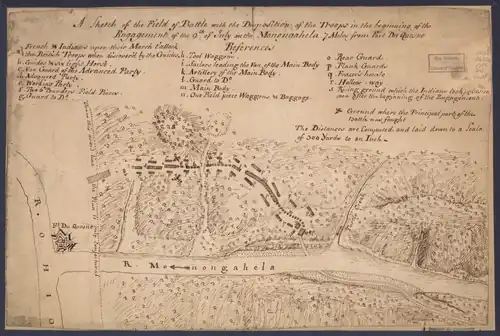 A Sketch of the Field of Battle with the Disposition of the Troops in the beginning of the
Engagement of the 9th of July on the Monongahela 7 Miles from Fort Du Quesne
References
French & Indians upon their March to attack
the British Troops when discovered by the Guides
b. Guides & six light Horse
c. Van Guard of the Advanced Party
d. Advanced Party
e. Working Party
f. Two 6 Pounders Field Pieces
g. Guard to Do.
h. Tool Waggons
i. leading the Van of the Main Body
k. Artillery of the Main Body
l. Guard to Do.
m. Main Body
n. One Field piece Waggons & Baggage
o Rear Guard
p Flank Guards
q Frazer's house
r Hollow-way
s Rising ground which the Indians took possession of
soon after the beginning of the Engagement
Ground where the Principal part of the
Battle was fought
The Distances are Computed and laid down to a Scale
of 300 Yards to an Inch
Ft. Du Quesne
R. OHIO
R. Monongahela